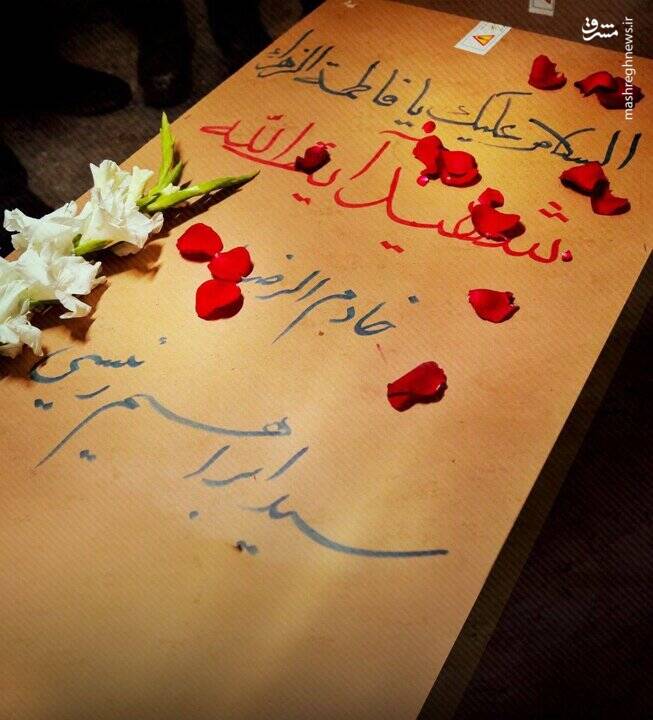 مشرق
mashreghnews.ir
السلام علیک یا فاطمة الزهراء
شهید آیة الله
خادم الرضا
سید ابراهیم رئیسی